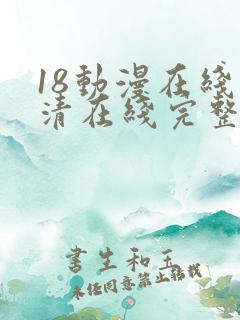 18動漫在綫
清在綫完整
書生和玉
未经同意禁止转载